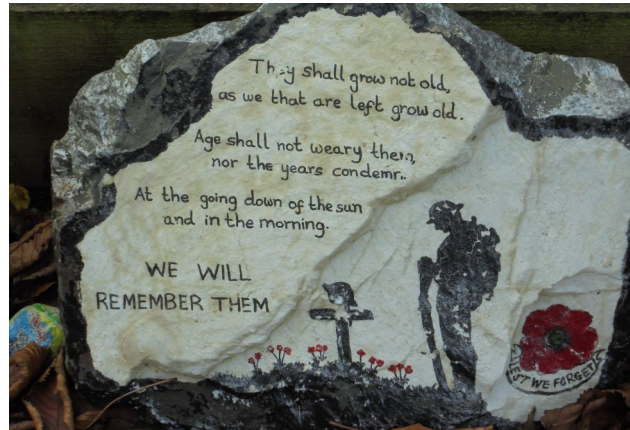 They shall grow not old,
as we that are left grow old.
Age shall not weary them,
nor the years condemn.
At the going down of the sun
and in the morning.
WE WILL
REMEMBER THEM
LEST WE FORGET